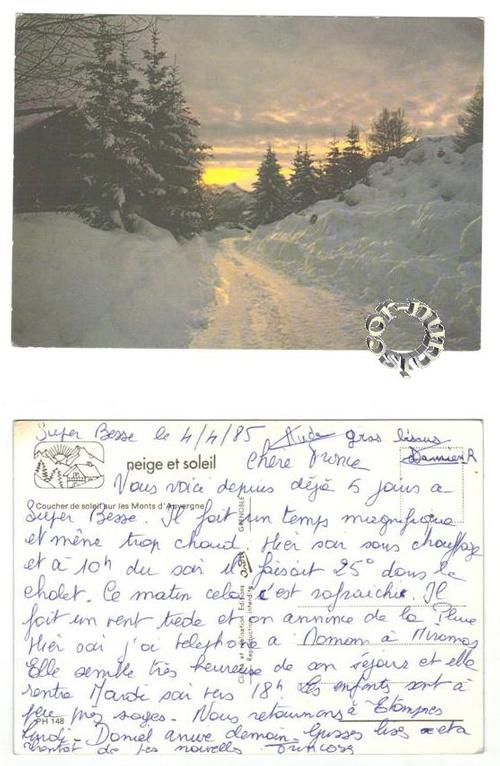 cor-numiscor
Super Besse le 4/4/85
Aude gros bisous
Damien
neige et soleil
Chère
Coucher de soleil sur les Monts d'Auvergne
Vous voici depuis déjà 5 jours a
Super Besse. Il fait un temps magnifique
et même trop chaud. Hier soir sans chauffage
et à 10h du soir il faisait 25° dans le
chalet. Ce matin cela s'est rafraichi. Il
fait un vent tiède et on annonce de la Pluie
Hier soir j'ai telephoné à Maman à Miramas
Elle semble très heureuse de son séjour et elle
rentre Mardi soir vers 18h. Les enfants sont à
peu près sages. Nous retournons à Etampes
PH 148
Lundi. Daniel arrive demain. Grosses bises et a
bientot de tes nouvelles Françoise
GRENOBLE